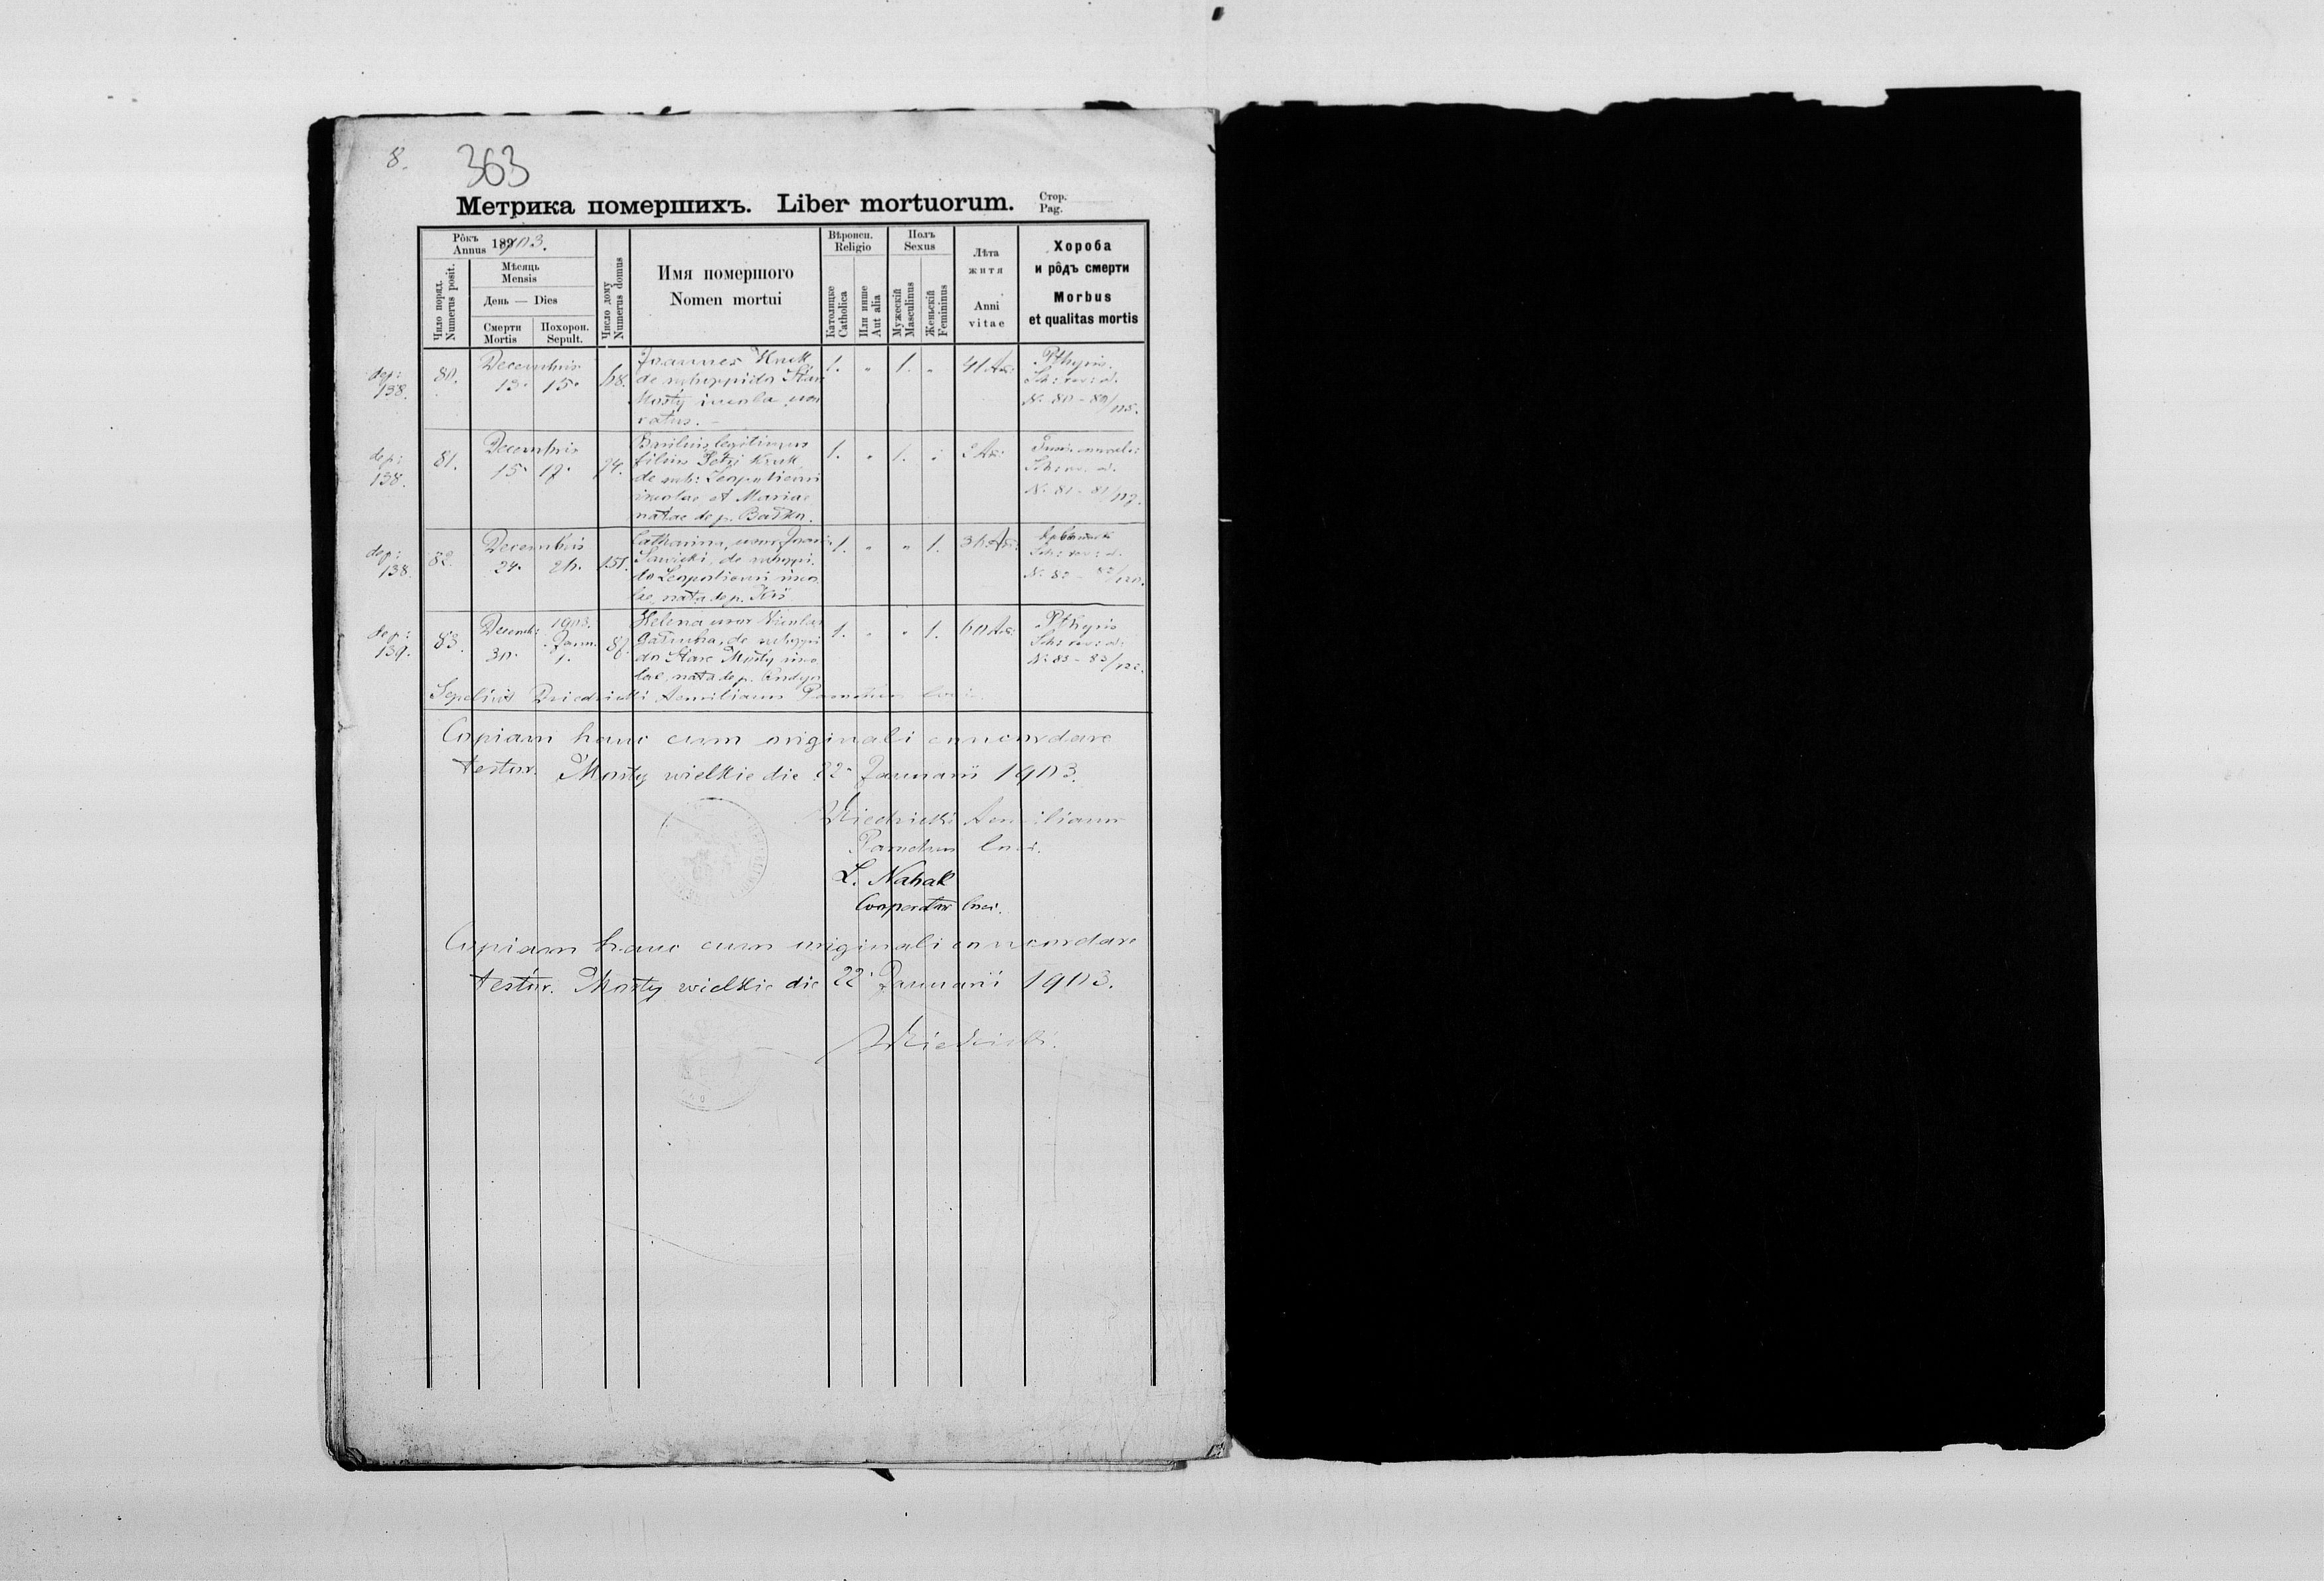 8.
363
Метрика помершихъ. Liber mortuorum.
Стор.
Pag.
Рôкъ
Annus 1903.
Число поряд.
Numerus posit.
Мѣсяць
Mensis
День — Dies
Смерти
Mortis
Похорон.
Sepult.
Число дому
Numerus domus
Имя помершого
Nomen mortui
Вѣроисп.
Religio
Католицке
Catholica
Или инше
Aut alia
Полъ
Sexus
Мужескій
Masculinus
Женьскій
Femininus
Лѣта
житя
Anni
vitae
Хороба
и рôдъ смерти
Morbus
et qualitas mortis
dep:
138.
80.
Decembris
13. 15.
68.
Joannes Kruk
de suburpido Stare
Mosty incola uxo
ratus.
1. „ 1. „
41 An:
Pthysis.
N. 80 - 80/115.
dep:
138.
81.
Decembris
15. 17.
74.
Basilius, legitimus
filius Petri Kruk
de sub: Leopoliensi
incolae et Mariae
natae de p. Baśko.
1. „ 1. „
2 An:
N. 81 - 81/117.
dep:
138.
82.
Decembris
24. 26.
151.
Catharina, uxor Joan:
Sawicki, de suburpi
do Leopoliensi inco
lae, nata de p. Kiś
1. „ „ 1.
36 An:
N. 82 - 82/120.
dep:
139.
83.
Decemb: 1903.
Janu.
30. 1.
Helena uxor Nicolai
de suburpi
do Stare Mosty inco
lae, nata de p.
1. „ „ 1.
60 An:
Pthysis
N. 83 - 83/122.
Sepelivit Dziedzicki Aemilianus Parochus loci.
Copiam hanc cum originali concordare
testor. Mosty wielkie die 22. Januarii 1903.
Dziedzicki Aemilianus
Parochus loci.
L. Nahak
Cooperator loci.
Copiam hanc cum originali concordare
testor. Mosty wielkie die 22. Januarii 1903.
Dziedzicki.